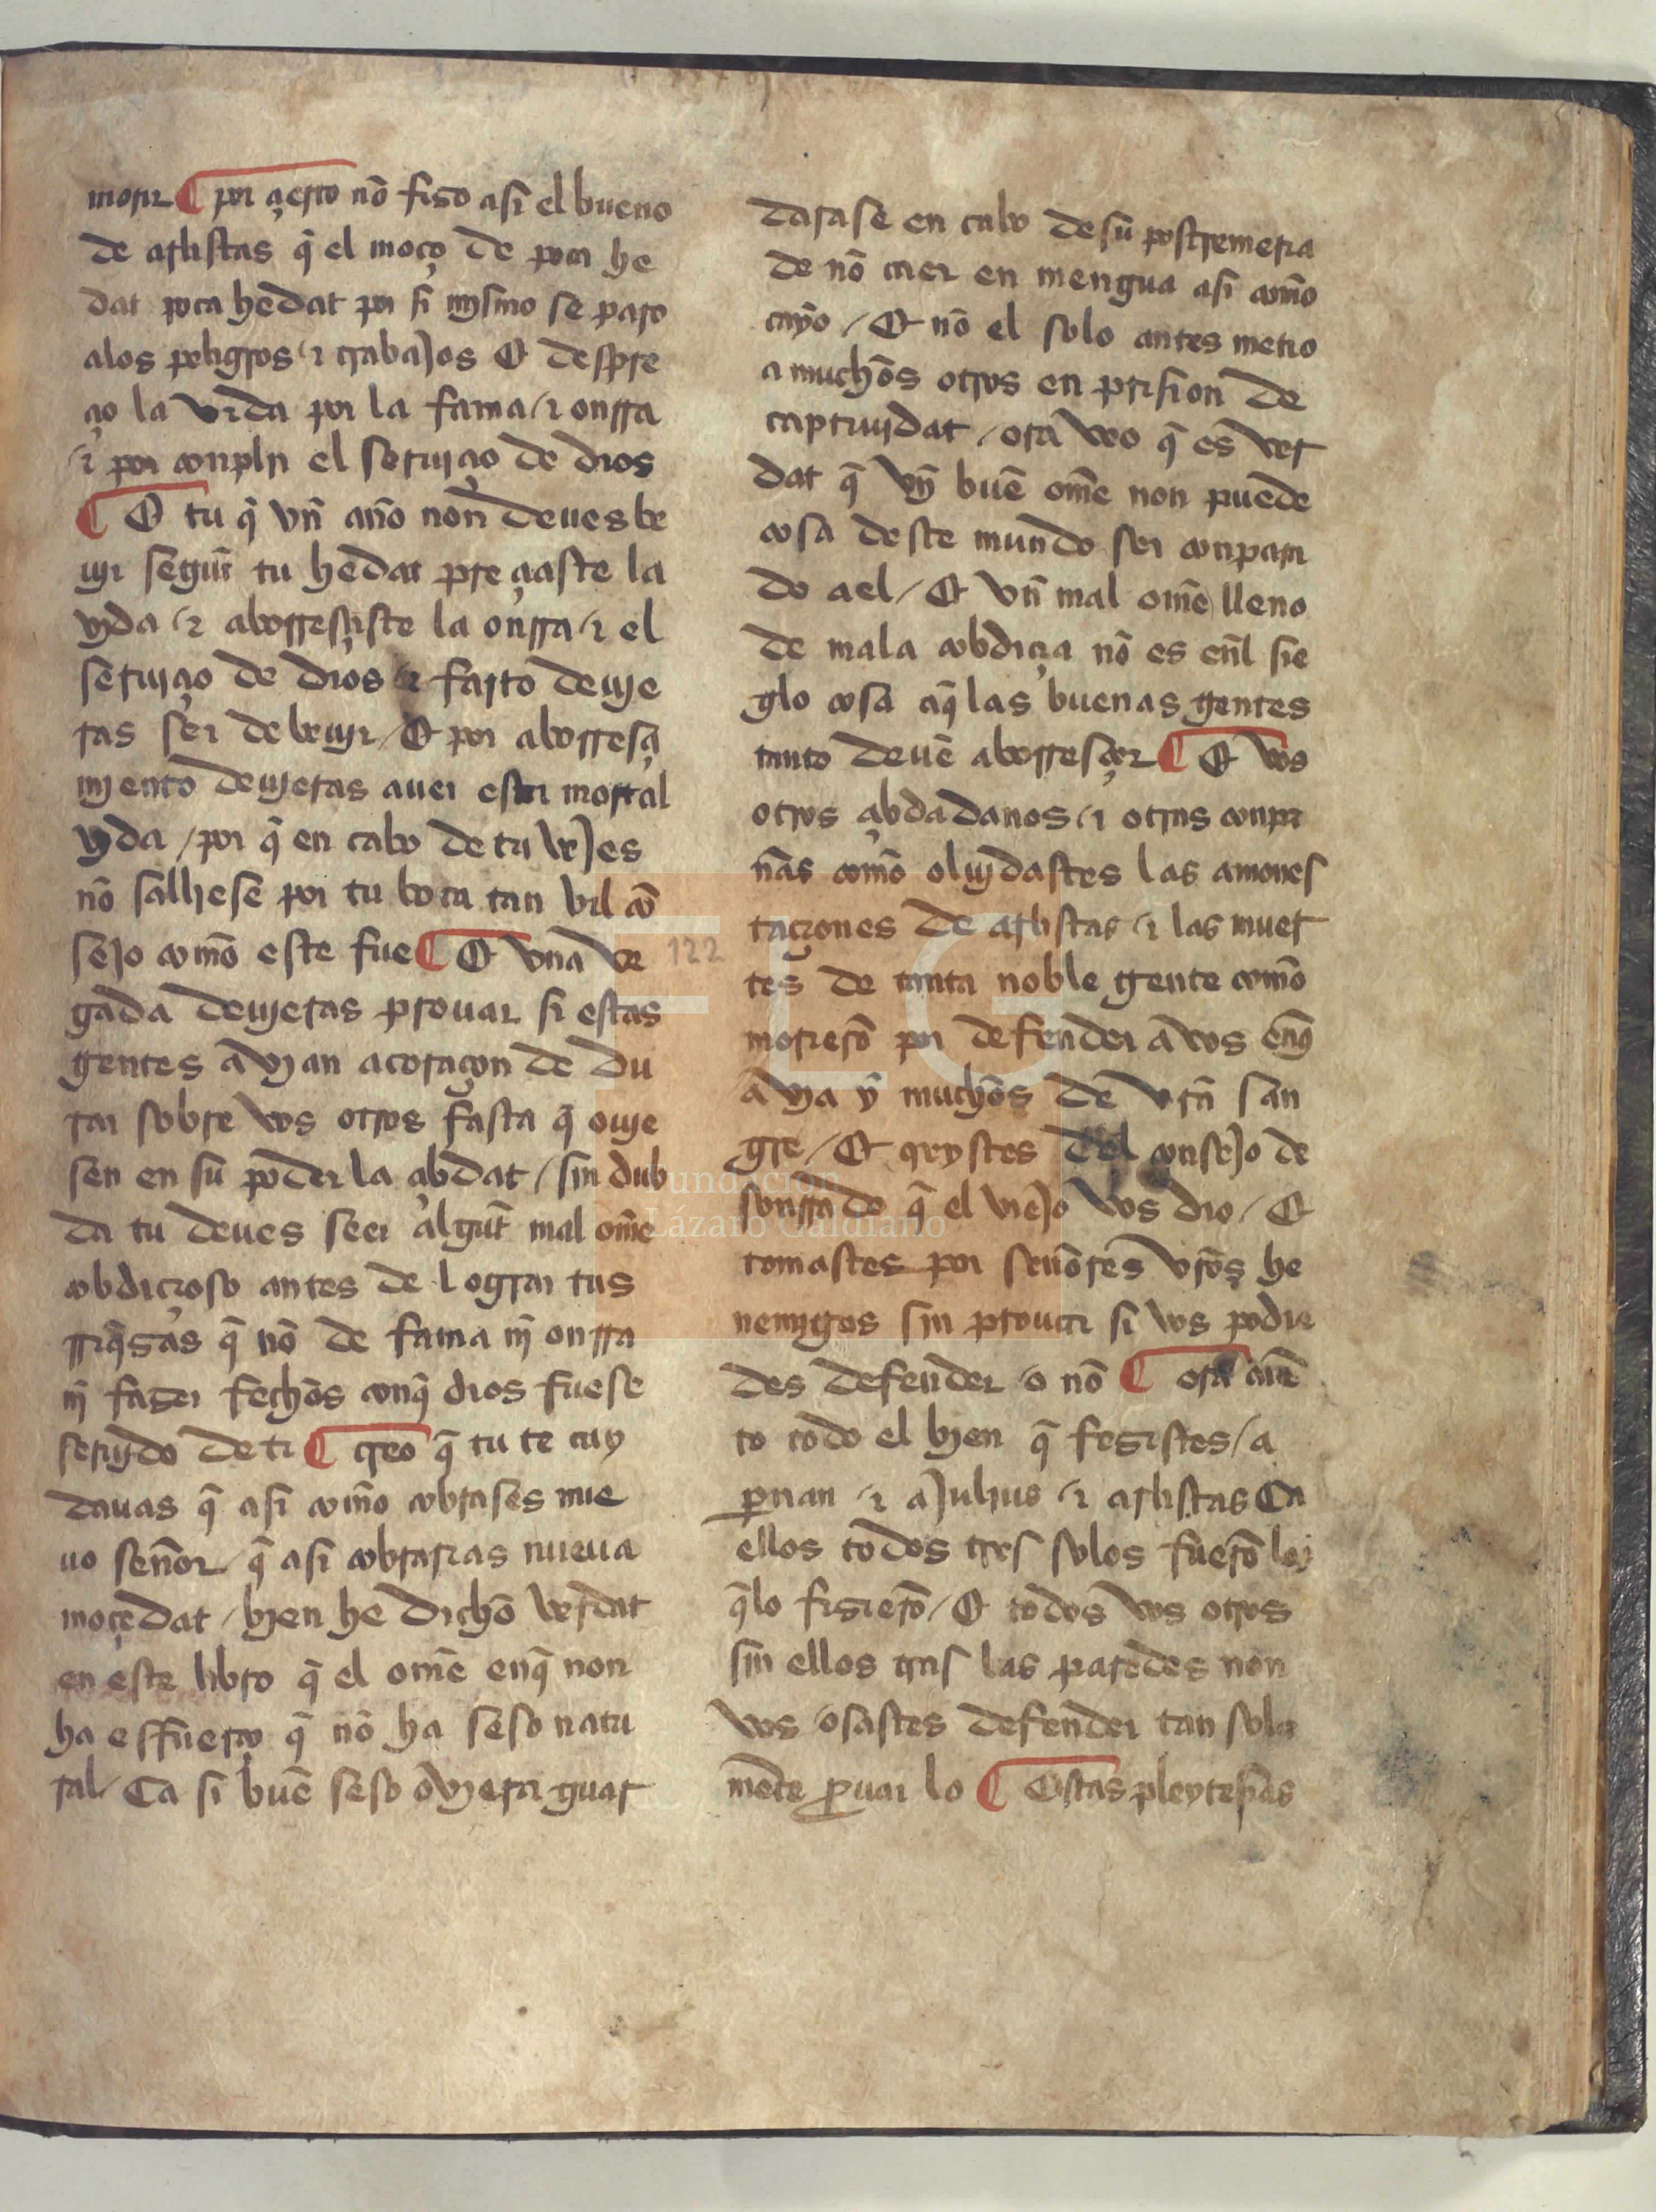 morir ¶ por çierto nõ fizo asi el bueno
de arlistas q̃ el moço de poca he
dat poca hedat por si mysmo se paro
alos peligros ⁊ trabaJos Et despre
çio la vida por la fama ⁊ onrra
⁊ por conplir el seruiçio de dios
¶ O tu q̃ vñ año non deues be
uir segũt tu hedat preçiaste la
vyda ⁊ aborresçiste la onrra ⁊ el
seruiçio de dios ⁊ farto deuie
ras ser de beuyr / Et por aborresçi
myento deuyeras auer esta mortal
vyda / por q̃ en cabo de tu veJes
nõ salliese por tu boca tan vil cõ
seJo comõ este fue ¶ O vna ve
122
gada deuyeras prouar si estas
gentes avyan acoraçon de du
rar sobre vos otros fasta q̃ ouie
sen en su poder la çibdat / sin dub
da tu deues seer algũt mal om̃e
cobdiçioso antes de lograr tus
rriq̃zas q̃ nõ de fama nj onrra
nj fazer fechos conq̃ dios fuese
seruydo de ti ¶ creo q̃ tu te cuy
dauas q̃ asi comõ cobrases nue
uo señor / q̃ asi cobrarias nueua
moçedat / byen he dicho verdat
en este libro q̃ el om̃e enq̃ non
ha esfuerço q̃ nõ ha seso natu
ral / Ca si buẽ seso ovyera guar
darase en cabo de su postremeria
de nõ caer en mengua asi comõ
cayo / Et nõ el solo antes metio
a muchos otros en prision de
captiuydat / ora veo q̃ es ver
dat q̃ vñ buẽ om̃e non puede
cosa deste mundo ser conpara
do ael / Et vñ mal om̃e lleno
de mala cobdiçia nõ es eñl sie
glo cosa aq̃ las buenas gentes
tanto deuẽ aborresçer ¶ O vos
otros çibdadanos ⁊ otras conpa
ñas comõ oluydastes las amones
taçiones de arlistas ⁊ las muer
tes de tanta noble gente comõ
morierõ por defender avos enq̃
avya y̑ muchos de vr̃a san
gre / Et creystes del conseJo de
sonrrado q̃ el vieJo vos dio / Et
tomastes por señores vr̃os he
nemygos sin prouar si vos podie
des defender o nõ ¶ ora cuẽ
to todo el byen q̃ fezistes / a
p̱rian ⁊ aJulius ⁊ arlistas Ca
ellos todos tres solos fuerõ los
q̃lo fizierõ / Et todos vos otros
sin ellos tras las paredes non
vos osastes defender tan sola
mẽte p̱uar lo ¶ Estas pleytesias
Fundación
Lázaro Galdiano